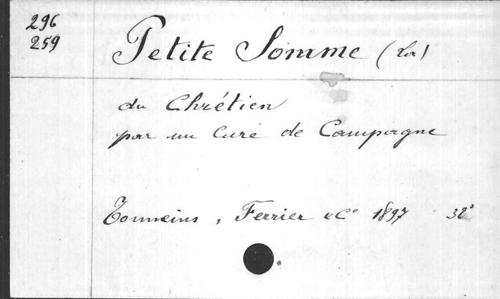 296
259
Petite Somme (La)
du Chrétien
par un Curé de Campagne
Tonneins, Ferrier & Cº 1897 32º